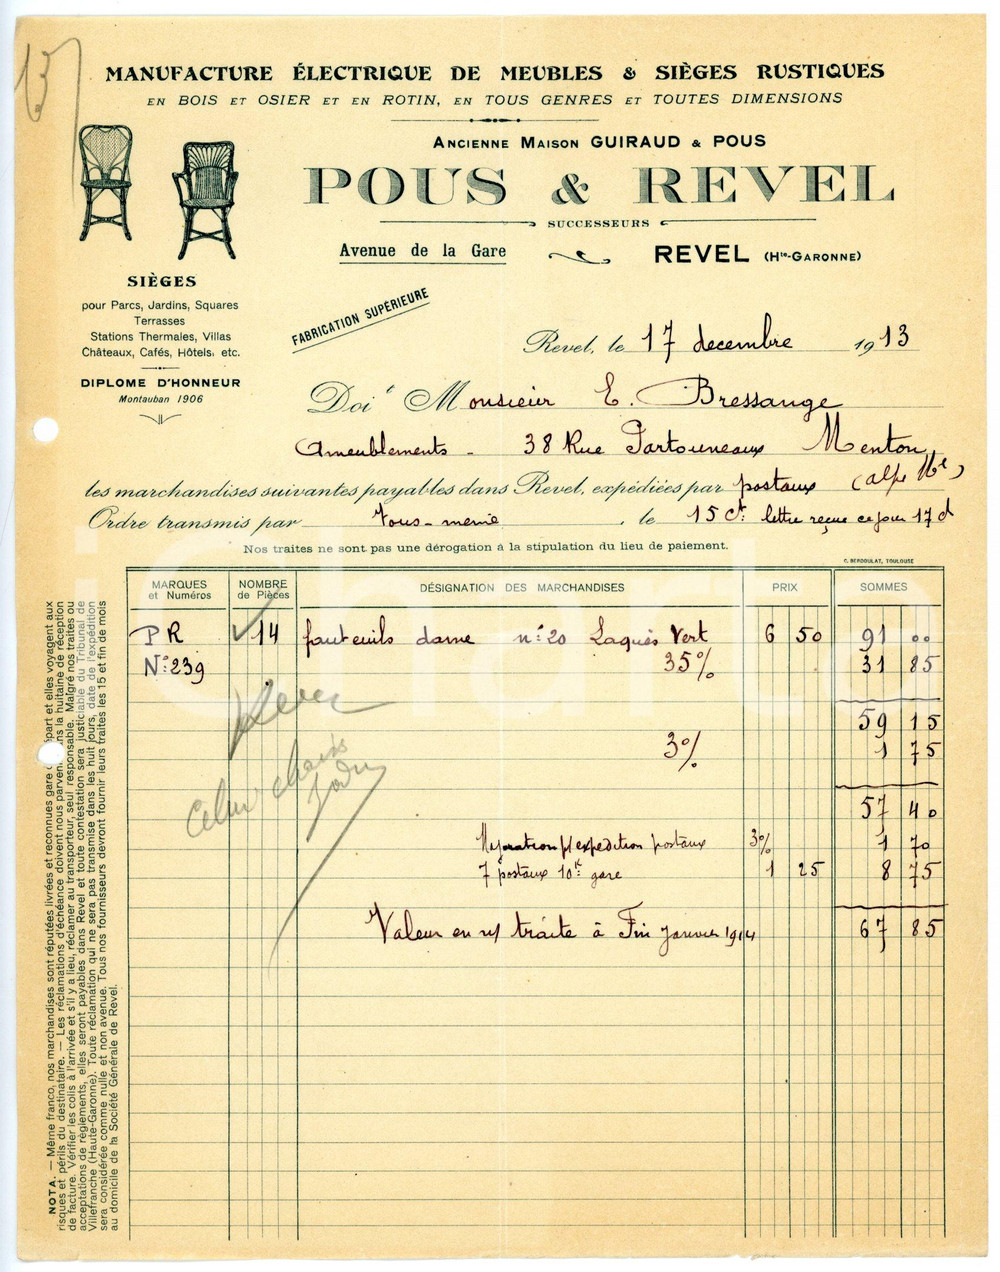 13
MANUFACTURE ÉLECTRIQUE DE MEUBLES & SIÈGES RUSTIQUES
EN BOIS ET OSIER ET EN ROTIN, EN TOUS GENRES ET TOUTES DIMENSIONS
ANCIENNE MAISON GUIRAUD & POUS
POUS & REVEL
SUCCESSEURS
Avenue de la Gare REVEL (Hte-GARONNE)
SIÈGES
pour Parcs, Jardins, Squares
Terrasses
Stations Thermales, Villas
Châteaux, Cafés, Hôtels, etc.
DIPLOME D'HONNEUR
Montauban 1906
FABRICATION SUPÉRIEURE
Revel, le 17 decembre 1913
Doit Monsieur E. Bressange
Ameublements - 38 Rue Partouneaux Menton
les marchandises suivantes payables dans Revel, expédiées par postaux (alpe Mes)
Ordre transmis par Vous-meme, le 15 Ct lettre reçue ce jour 17 d
Nos traites ne sont pas une dérogation à la stipulation du lieu de paiement.
C. BERDOULAT, TOULOUSE
MARQUES et Numéros NOMBRE de Pièces DÉSIGNATION DES MARCHANDISES PRIX SOMMES
PR 14 fauteuils dame n° 20 Laqués Vert 6 50 91 00
N° 239 35% 31 85
59 15
3% 1 75
57 40
Majoration p/ expedition postaux 3% 1 70
7 postaux 10k gare 1 25 8 75
Valeur en n/ traite à Fin Janvier 1914 67 85
NOTA. — Même franco, nos marchandises sont réputées livrées et reconnues gare départ et elles voyagent aux
risques et périls du destinataire. — Les réclamations d'échéance doivent nous parvenir dans la huitaine de réception
de facture. Vérifier les colis à l'arrivée et s'il y a lieu, réclamer au transporteur, seul responsable. Malgré nos traites ou
acceptations de règlements, elles seront payables dans Revel et toute contestation sera justiciable du Tribunal de
Villefranche (Haute-Garonne). Toute réclamation qui ne sera pas transmise dans les huit jours, date de l'expédition
sera considérée comme nulle et non avenue. Tous nos fournisseurs devront fournir leurs traites les 15 et fin de mois
au domicile de la Société Générale de Revel.